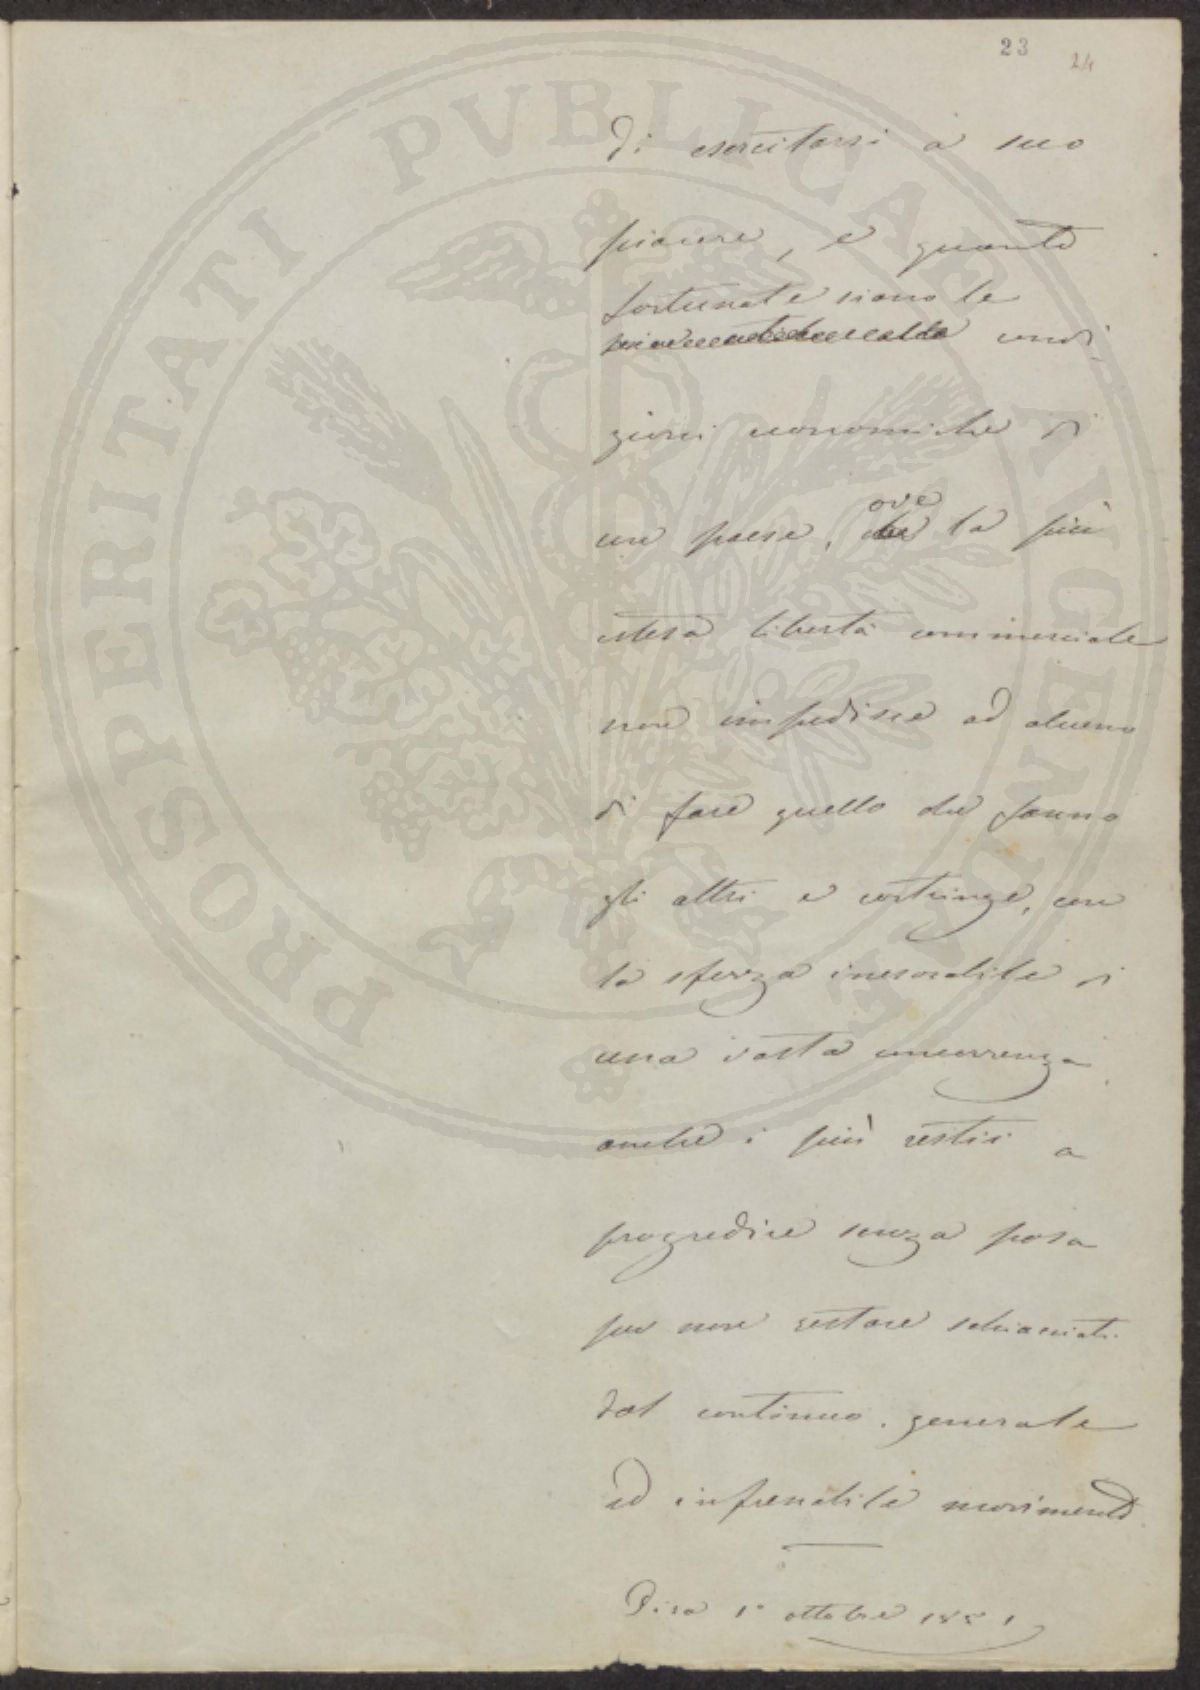 23
24
PROSPERITATI PVBLICAE AVGENDAE
di esercitarsi a suo
piacere, e quanto
fortunate siano le
condi,
zioni economiche di
un paese, ove la più
estesa libertà commerciale
non impedisce ad alcuno
di fare quello che fanno
gli altri e costringe, con
la sferza inesorabile di
una vasta concorrenza,
anche i più restii a
progredire senza posa
per non restare schiacciati
dal continuo, generale
ed infrenabile movimento.
Pisa 1° ottobre 1881